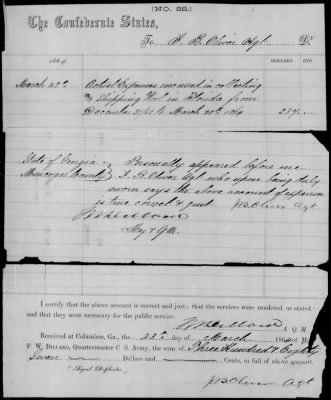 [NO. 22.]
The Confederate States,
To J. B. Oliver Agt Dr
DOLLARS CTS
1864
March 22d Actual Expenses incurred in collecting
and shipping in Florida from
December 31st to March 20th 1864 387
State of Georgia Personally appeared before me
Muscogee County J. B. Oliver Agt who upon being duly
sworn says the above account of expenses
is true correct & just J B Oliver Agt
Maj & Qm
I certify that the above account is correct and just; that the services were rendered as stated;
and that they were necessary for the public service.
A. Q. M.
Received at Columbus, Ga., the 22d day of March 1864 of
F. W. DILLARD, Quartermaster C. S. Army, the sum of Three Hundred & Eighty
Seven Dollars and Cents, in full of above account.
(Signed Duplicates)
J B Oliver Agt